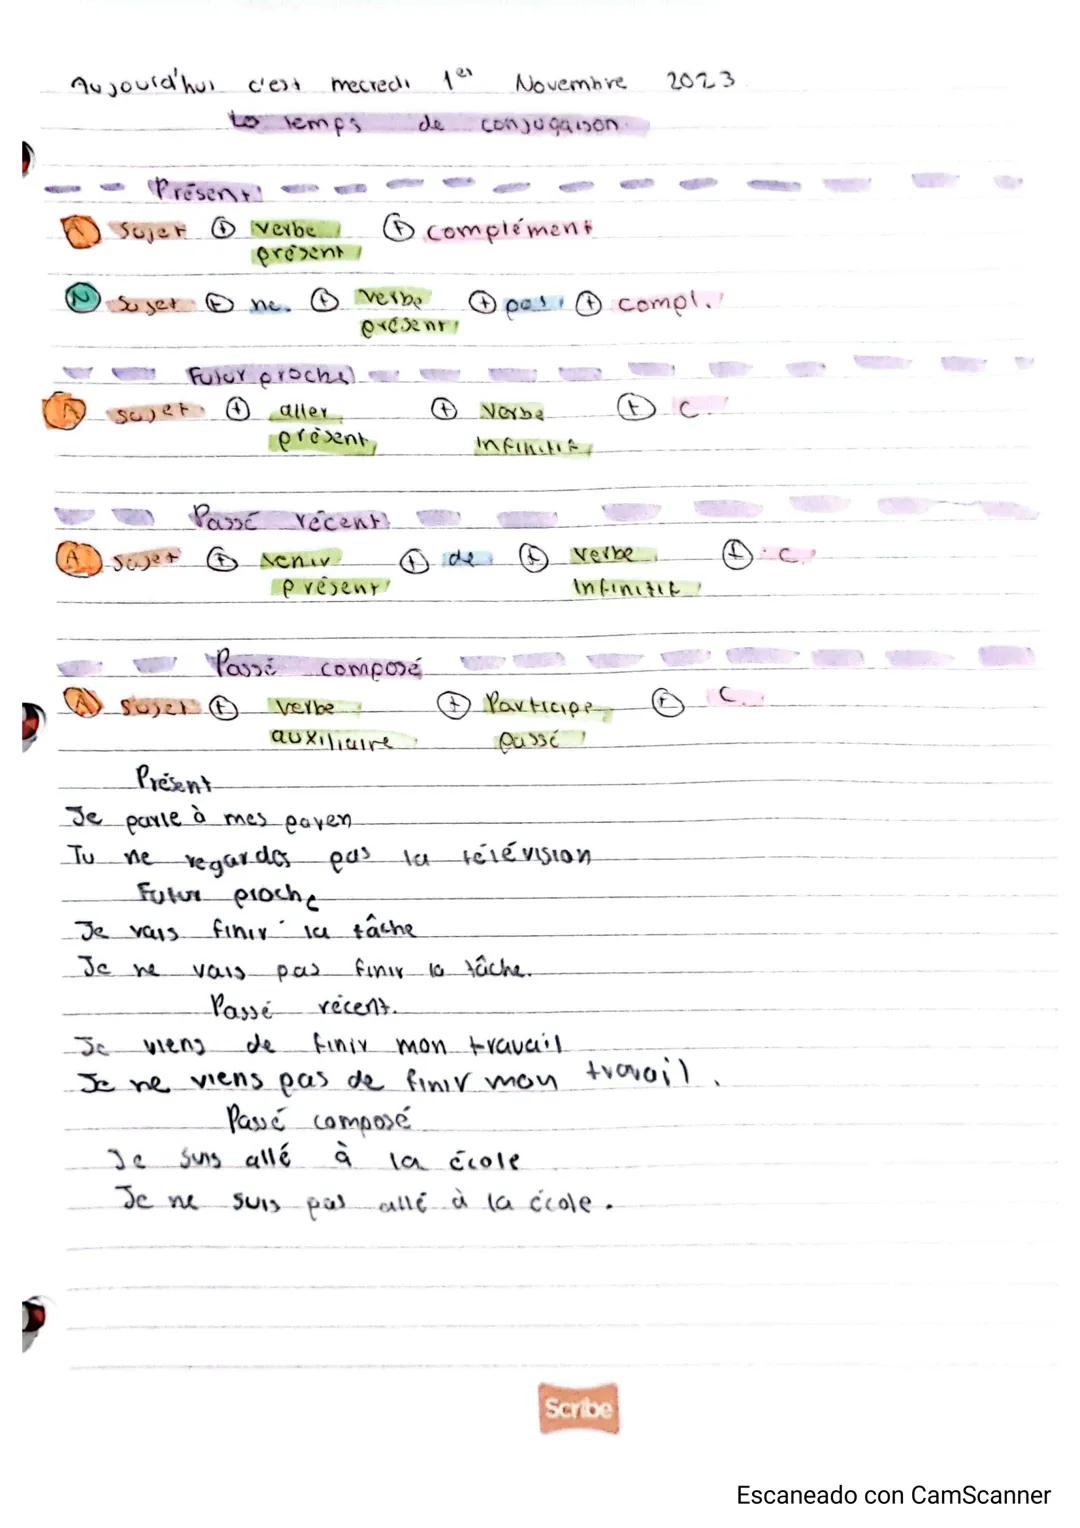 Aujourd'hui c'est mecredi 1er Novembre 2023
temps de conjugaison.
Présent
A Sujet + verbe + complément
présent
N Sujet + ne. + verbe + pas + compl.
présent
Futur proche
A sujet + aller + Verbe + C.
présent infinitif
Passé récent
A Sujet + venir + de + verbe + C.
présent infinitif
Passé composé
A Sujet + verbe + Participe + C.
auxiliaire passé
Présent
Je parle à mes paren
Tu ne regardes pas la télévision
Futur proche
Je vais finir la tâche
Je ne vais pas finir la tâche.
Passé récent.
Je viens de finir mon travail
Je ne viens pas de finir mon travail.
Passé composé
Je suis allé à la école
Je ne suis pas allé à la école.
Scribe
Escaneado con CamScanner